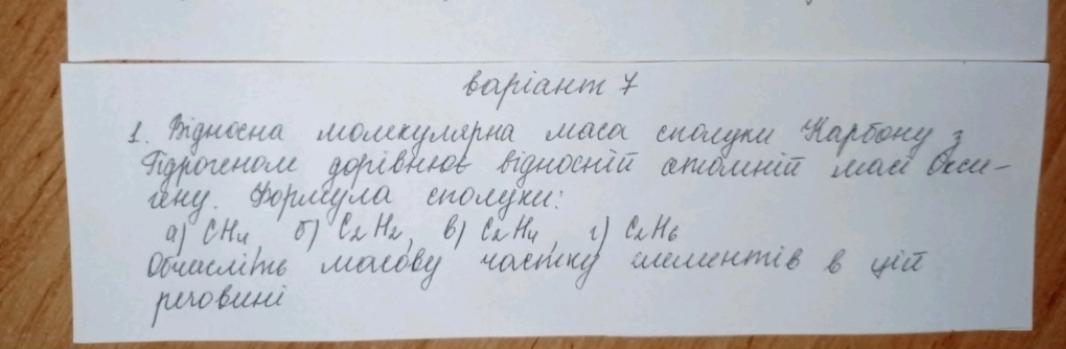 варіант 7
1. Відносна молекулярна маса сполуки Карбону з
Гідрогеном дорівнює відносній атомній масі Окси-
гену. Формула сполуки:
а) CH₄, б) C₂H₂, в) C₂H₄, г) C₂H₆
Обчисліть масову частку елементів в цій
речовині